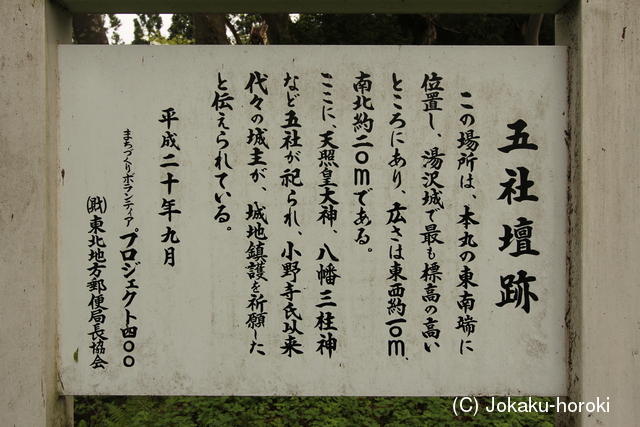 五社壇跡
この場所は、本丸の東南端に
位置し、湯沢城で最も標高の高い
ところにあり、広さは東西約一〇m、
南北約二〇mである。
ここに、天照皇大神、八幡三柱神
など五社が祀られ、小野寺氏以来
代々の城主が、城地鎮護を祈願した
と伝えられている。
平成二十年九月
まちづくりボランティア プロジェクト四〇〇
(財)東北地方郵便局長協会
(C) Jokaku-horoki